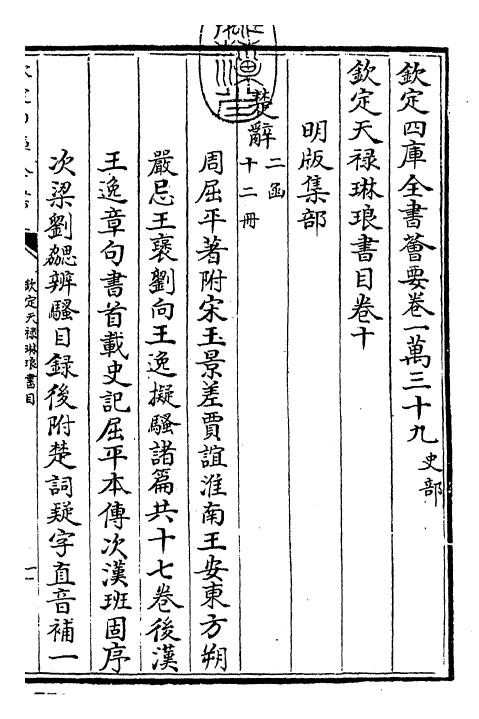 欽定四庫全書薈要卷一萬三十九 史部
欽定天祿琳琅書目卷十
明版集部
楚辭 二函 十二冊
周屈平著附宋玉景差賈誼淮南王安東方朔
嚴忌王褒劉向王逸擬騷諸篇共十七卷後漢
王逸章句書首載史記屈平本傳次漢班固序
次梁劉勰辨騷目録後附楚詞疑字直音補一
欽定天祿琳琅書目